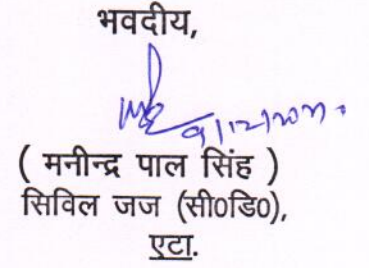 भवदीय,
( मनीन्द्र पाल सिंह )
सिविल जज (सी0डि0),
एटा.